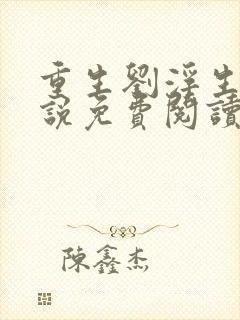 重生劉淫生
說免費閱讀
陳鑫杰